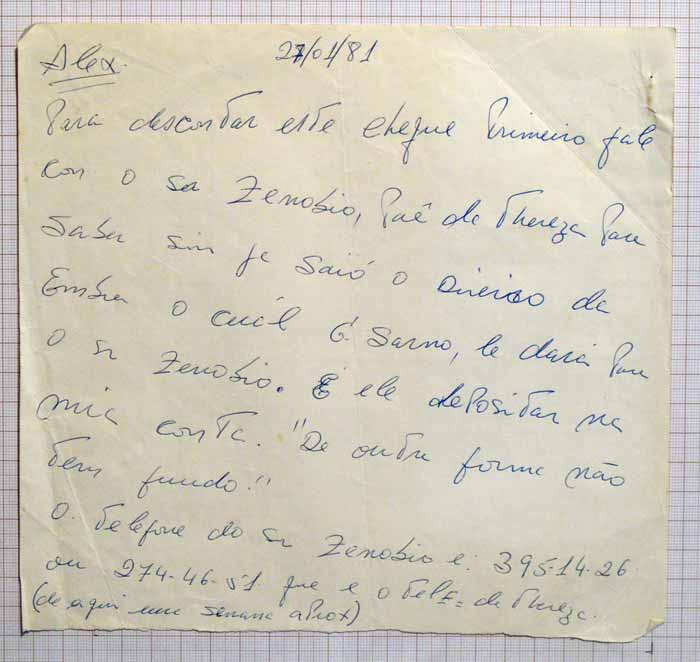 Alex.
27/01/81
Para descontar este cheque Primeiro fale
con o sr Zenobio, Paê de Thereza Para
Saber sin ja Saió o dineiro da
Embra o cuál G. Sarno, le dara Para
o sr Zenobio. E ele depositar na
mia conta. "De outra forma não
tem fundo."
O. Telefone do sr Zenobio e: 395-14-26
ou 274-46-51 que e o tele= de Thereza.
(de aqui uma semana aProx)